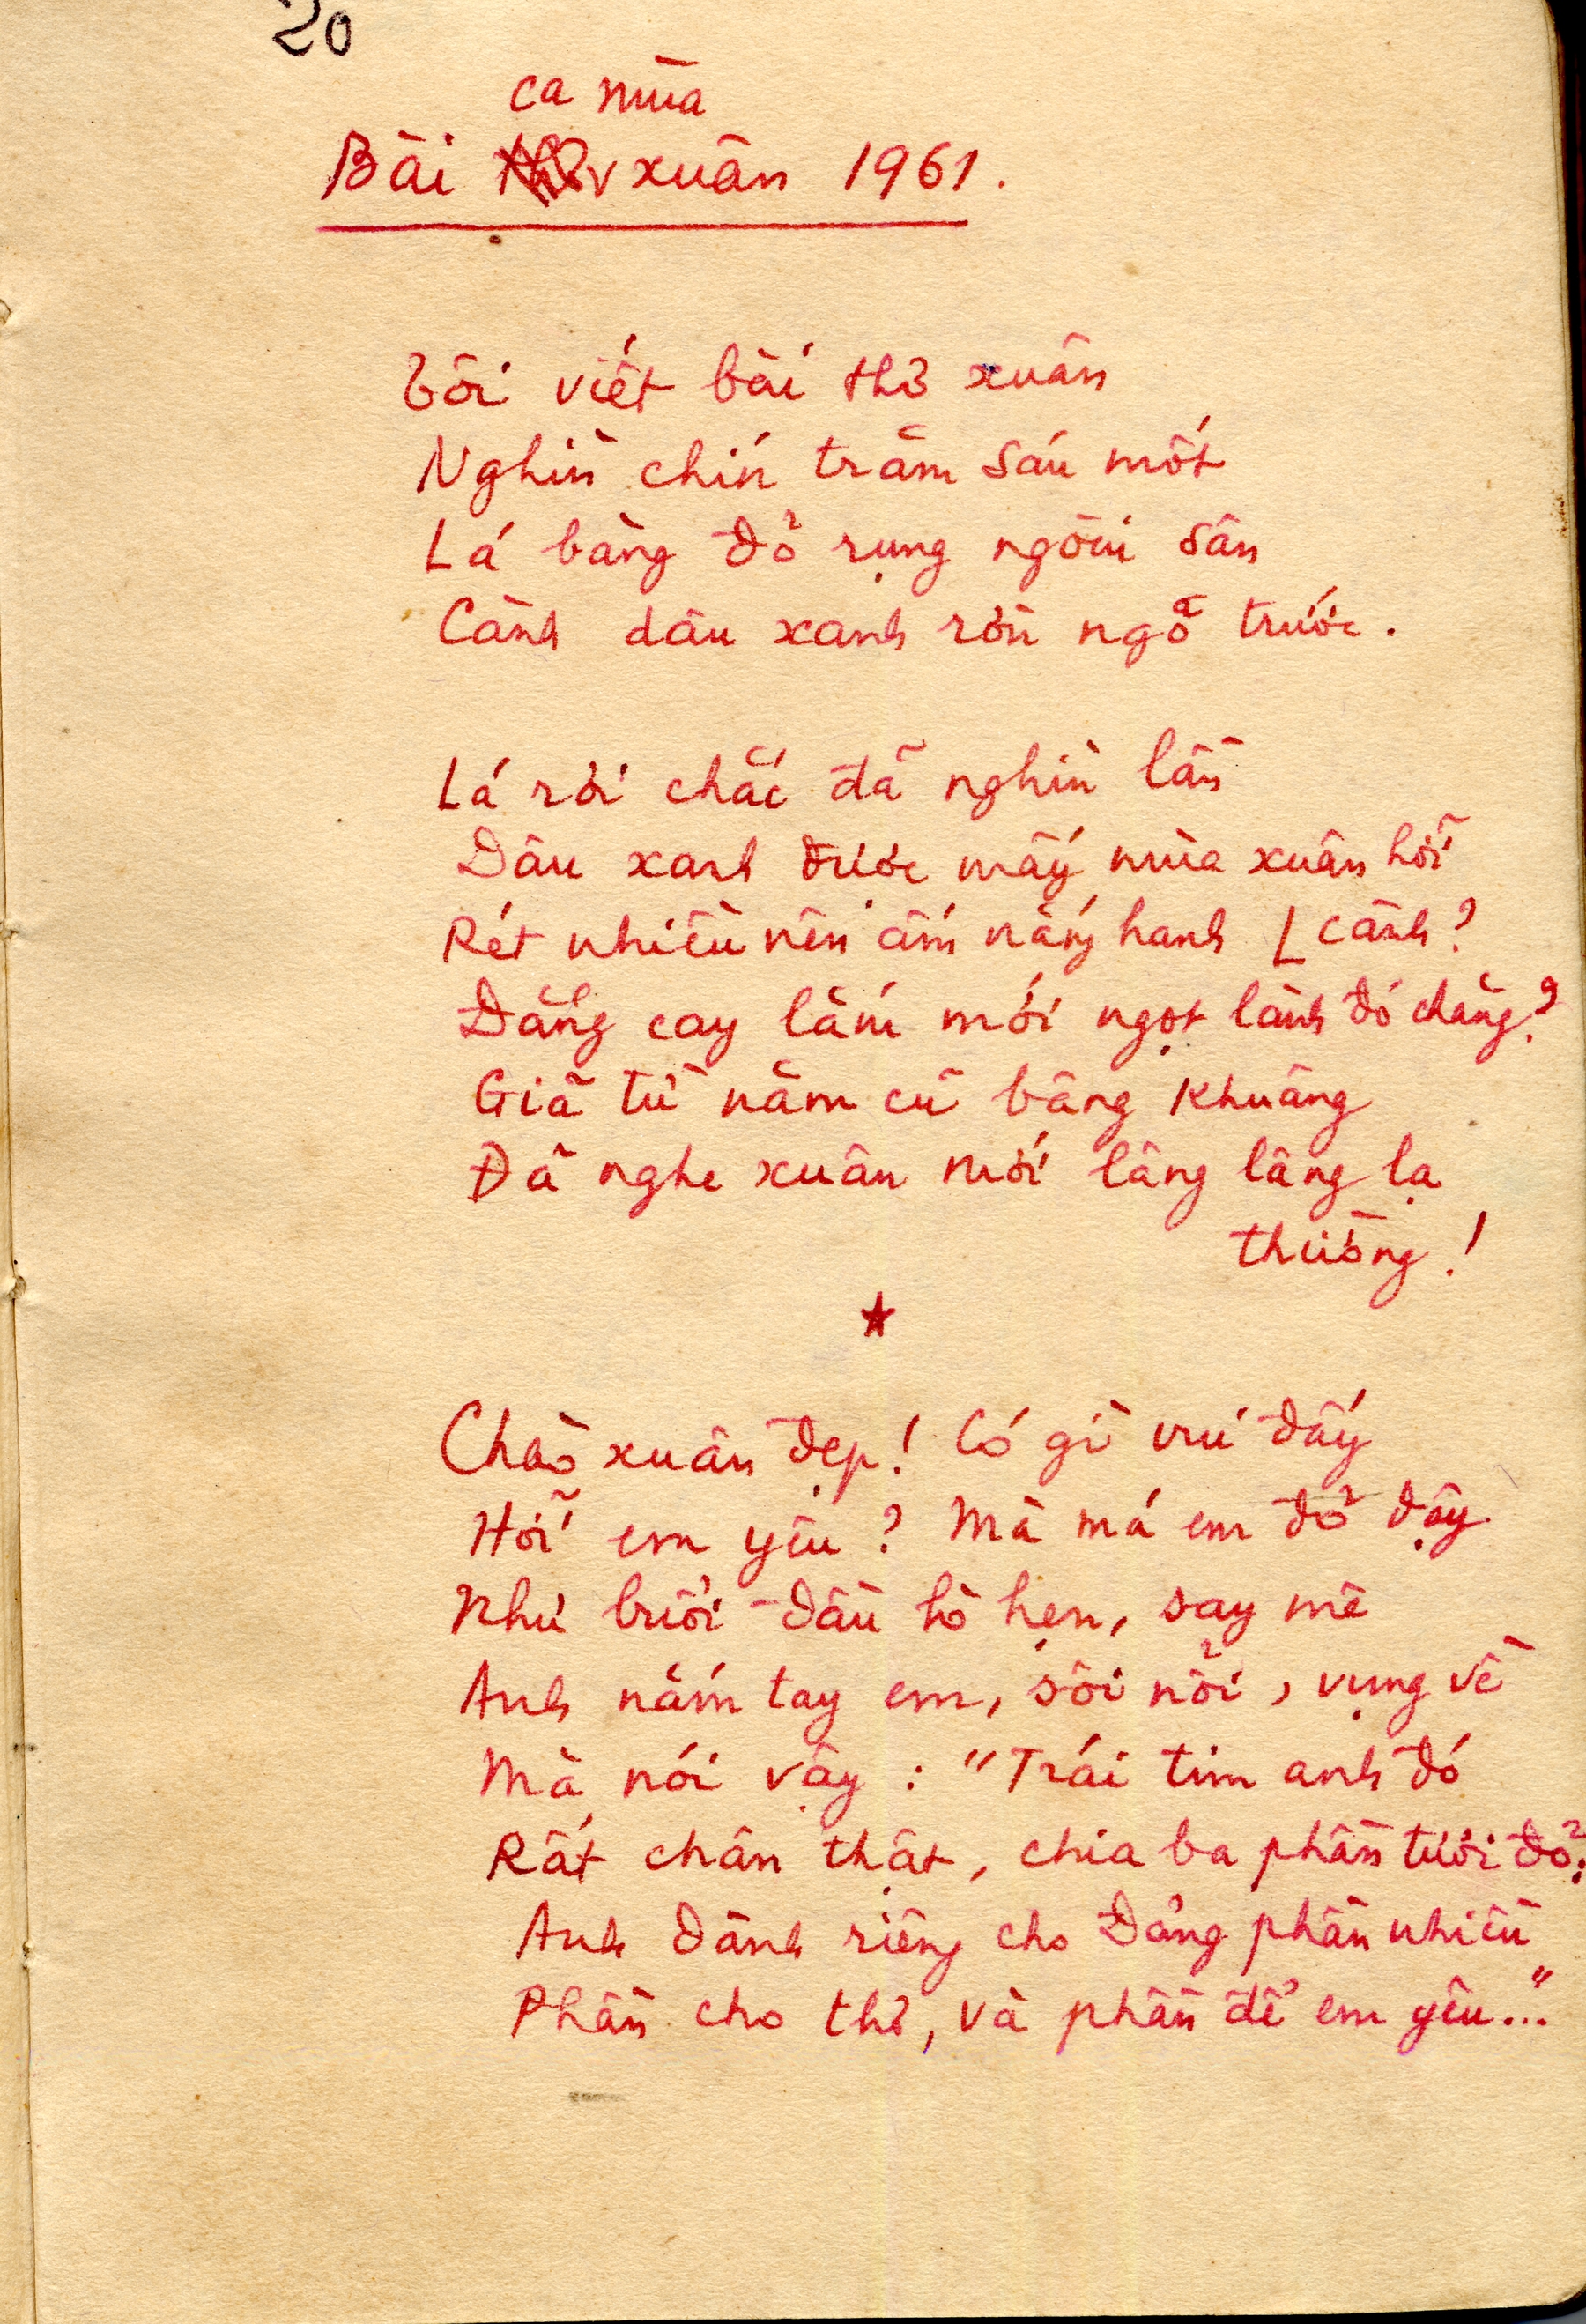 20
ca mùa
Bài xuân 1961.
Tôi viết bài thơ xuân
Nghìn chín trăm sáu mốt
Lá bàng đỏ rụng ngoài sân
Cành dâu xanh rờn ngõ trước.
Lá rơi chắc đã nghìn lần
Dâu xanh được mấy mùa xuân hỡi
Rét nhiều nên ấm nắng hanh [ cành?
Đắng cay lắm mới ngọt lành đó chăng?
Giã từ năm cũ bâng khuâng
Đã nghe xuân mới lâng lâng lạ
thường!
Chào xuân đẹp! Có gì vui đấy
Hỡi em yêu? Mà má em đỏ dậy
Như buổi đầu hò hẹn, say mê
Anh nắm tay em, sôi nổi, vụng về
Mà nói vậy: "Trái tim anh đó
Rất chân thật, chia ba phần tươi đỏ:
Anh dành riêng cho Đảng phần nhiều
Phần cho thơ, và phần để em yêu..."